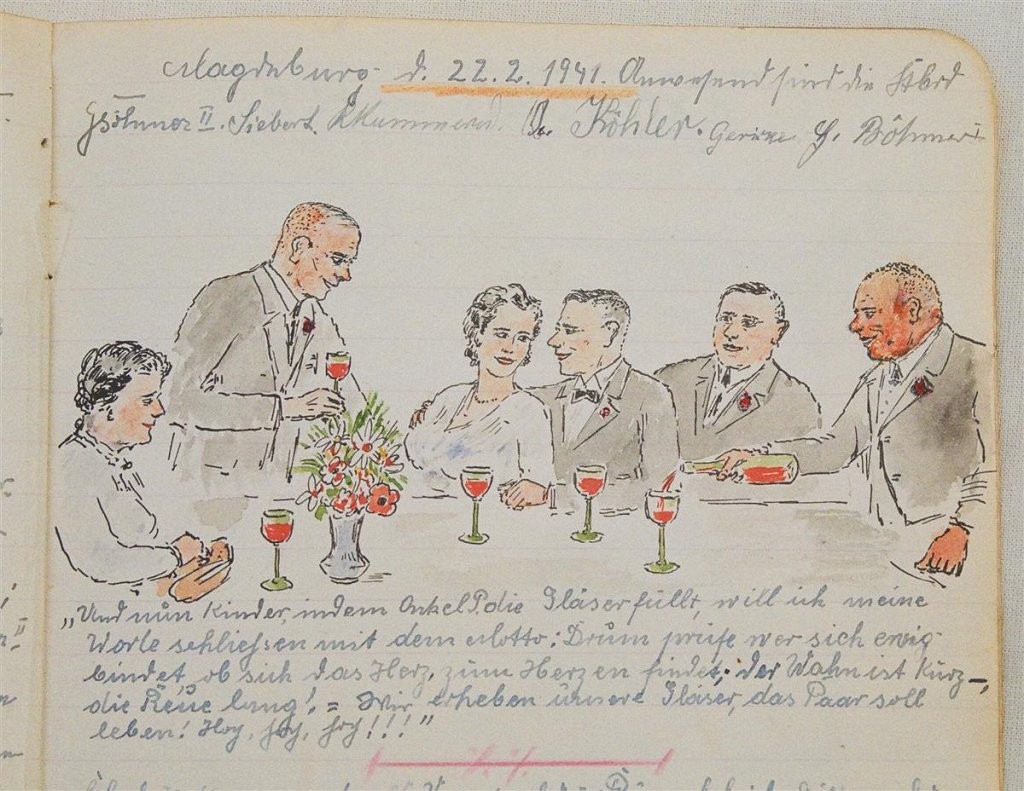 Magdeburg d. 22.2.1941. Anwesend sind die
II. Siebert. Köhler. Böhmer
„Und nun Kinder, indem Onkel P. die Gläser füllt, will ich meine
Worte schließen mit dem Motto: Drum prüfe wer sich ewig
bindet, ob sich das Herz zum Herzen findet; der Wahn ist kurz,
die Reue lang! = Wir erheben unsere Gläser, das Paar soll
leben! Hoy, hoy, hoy!!!"